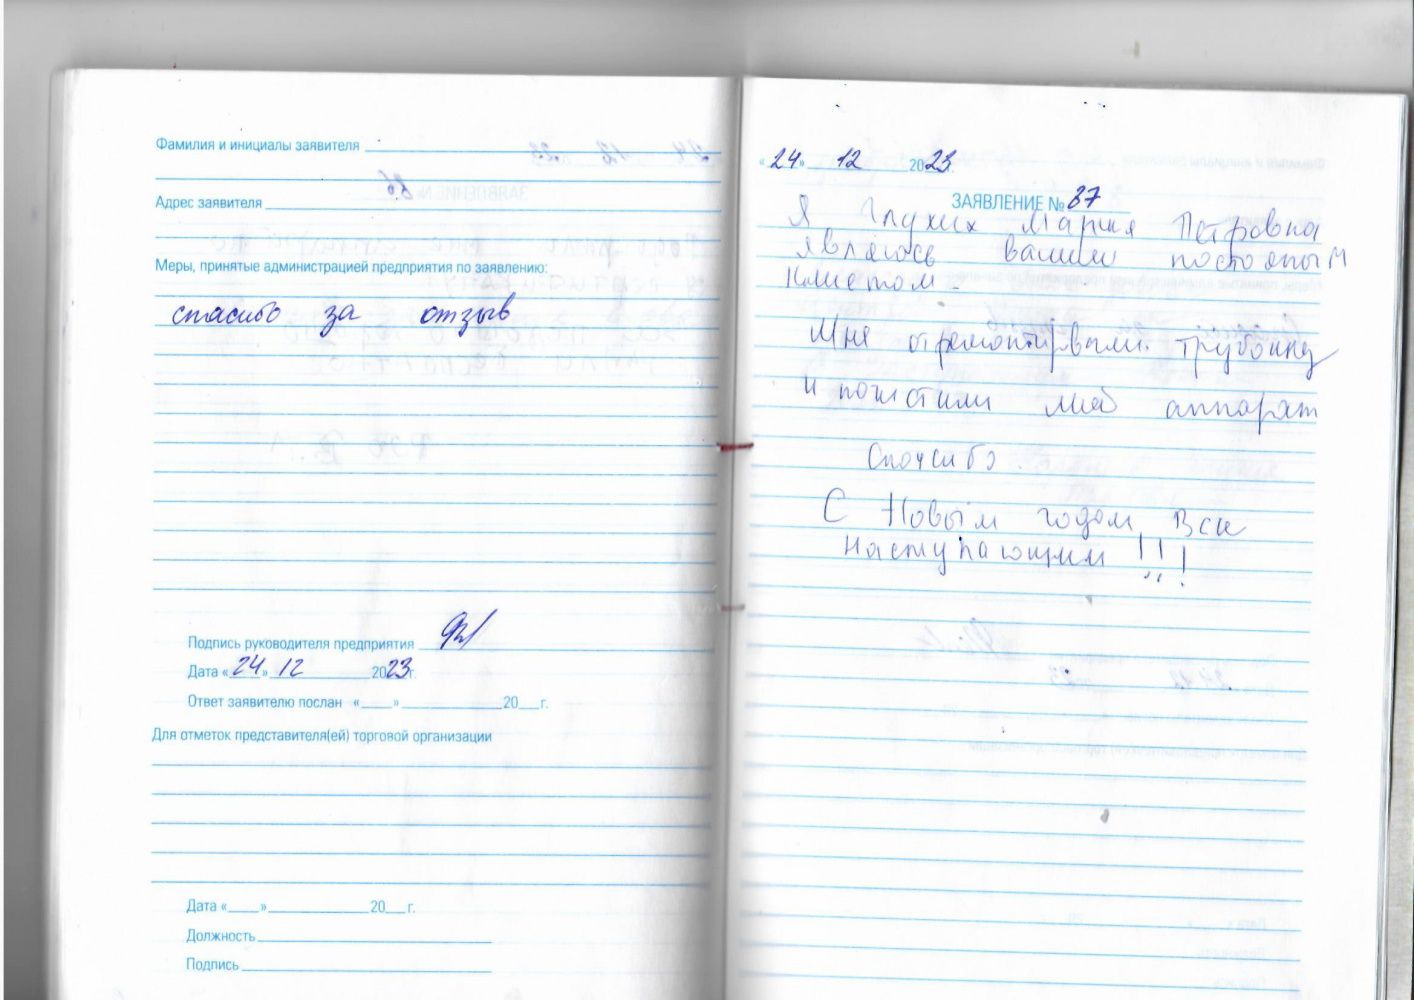 Фамилия и инициалы заявителя
Адрес заявителя
Меры, принятые администрацией предприятия по заявлению:
спасибо за отзыв
Подпись руководителя предприятия
Дата « 24 » 12 2023г.
Ответ заявителю послан « » 20 г.
Для отметок представителя(ей) торговой организации
Дата « » 20 г.
Должность
Подпись
« 24 » 12 2023г.
ЗАЯВЛЕНИЕ № 37
Я Глухих Мария Петровна
являюсь вашим постояным
клиетом.
Мне отремонтировали трубочку
и почистили мой аппарат
Спасибо.
С Новым годом Вск
наступающим !!!